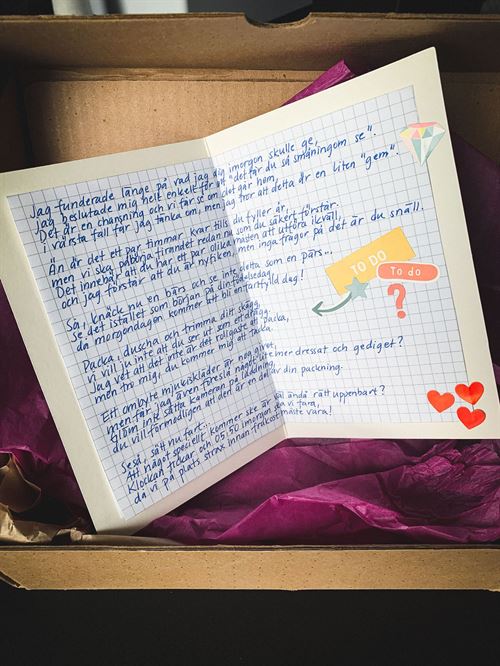 Jag funderade länge på vad jag dig imorgon skulle ge,
jag beslutade mig helt enkelt för att "det får du så småningom se".
Det är en chansning och vi får se om det går hem,
i värsta fall får jag tänka om, men jag tror att detta är en liten "gem".
Än är det ett par timmar kvar tills du fyller år,
men vi ska påbörja firandet redan nu som du säkert förstår.
Det innebär att du har ett par olika måsten att utföra ikväll,
och jag förstår att du är nyfiken men inga frågor på det är du snäll.
Så, knäck nu en bärs och se inte detta som en pärs...
Se det istället som början på din födelsedag,
då morgondagen kommer att bli dag!
Packa, duscha och trimma ditt skägg,
vi vill ju inte att du ser ut som ett ägg.
Jag vet att det inte är det roligaste att packa,
men tro mig, du kommer mig att tacka.
Ett ombyte mjukiskläder är nog givet,
men får jag även föreslå något lite mer dressat och gediget?
Glöm inte sätta kameran på laddning,
du vill förmodligen att den är en del av din packning.
Seså, sätt nu fart...
Att något speciellt kommer ske är väl ändå rätt uppenbart?
Klockan tickar och 05.50 imorgon ska vi fara,
då vi på plats strax innan frukost måste vara!
TO DO
To do
?